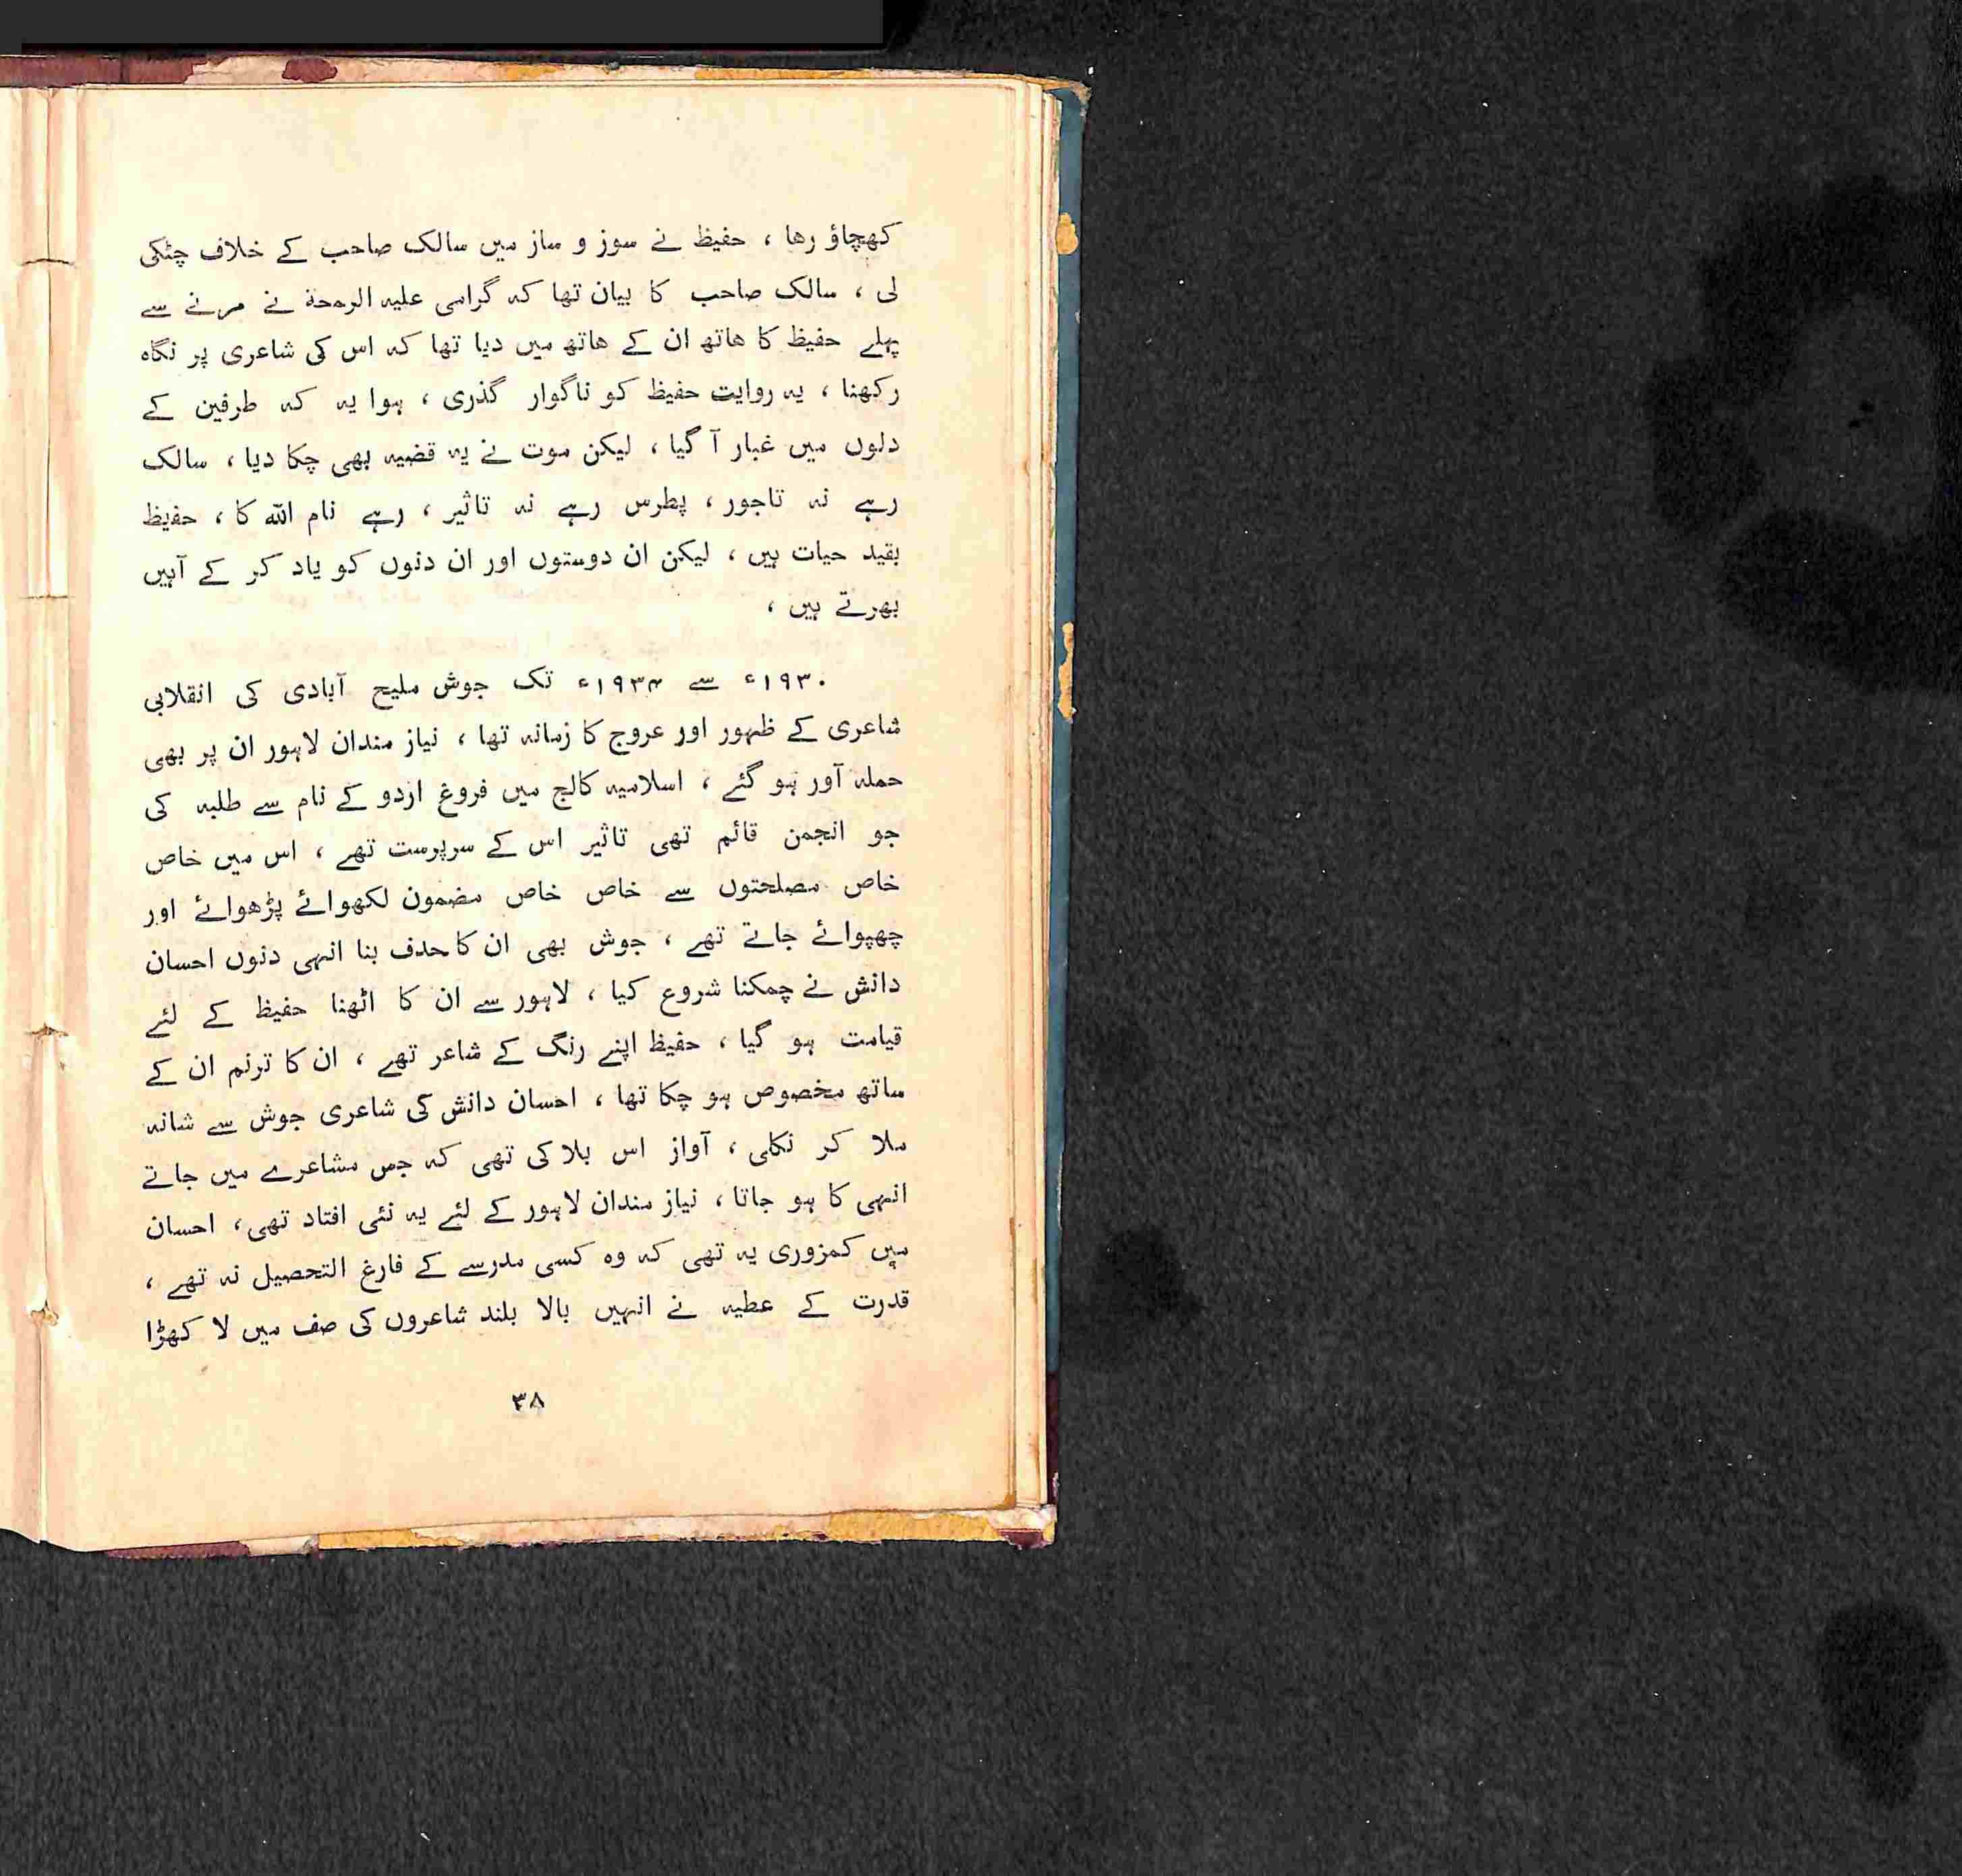 کھچاؤ رھا ، حفیظ نے سوز و ساز میں سالک صاحب کے خلاف چٹکی
لی ، سالک صاحب کا بیان تھا کہ گرامی علیہ الرحمة نے مرنے سے
پہلے حفیظ کا ھاتھ ان کے ھاتھ میں دیا تھا کہ اس کی شاعری پر نگاہ
رکھنا ، یہ روایت حفیظ کو ناگوار گذری ، ہوا یہ کہ طرفین کے
دلوں میں غبار آ گیا ، لیکن موت نے یہ قضیہ بھی چکا دیا ، سالک
رہے نہ تاجور ، پطرس رہے نہ تاثیر ، رہے نام اللہ کا ، حفیظ
بقید حیات ہیں ، لیکن ان دوستوں اور ان دنوں کو یاد کر کے آہیں
بھرتے ہیں ،
۱۹۳۰ء سے ۱۹۳۴ء تک جوش ملیح آبادی کی انقلابی
شاعری کے ظہور اور عروج کا زمانہ تھا ، نیاز مندان لاہور ان پر بھی
حملہ آور ہو گئے ، اسلامیہ کالج میں فروغ اردو کے نام سے طلبہ کی
جو انجمن قائم تھی تاثیر اس کے سرپرست تھے ، اس میں خاص
خاص مصلحتوں سے خاص خاص مضمون لکھوائے پڑھوائے اور
چھپوائے جاتے تھے ، جوش بھی ان کا حدف بنا انہی دنوں احسان
دانش نے چمکنا شروع کیا ، لاہور سے ان کا اٹھنا حفیظ کے لئے
قیامت ہو گیا ، حفیظ اپنے رنگ کے شاعر تھے ، ان کا ترنم ان کے
ساتھ مخصوص ہو چکا تھا ، احسان دانش کی شاعری جوش سے شانہ
ملا کر نکلی ، آواز اس بلا کی تھی کہ جس مشاعرے میں جاتے
انہی کا ہو جاتا ، نیاز مندان لاہور کے لئے یہ نئی افتاد تھی ، احسان
میں کمزوری یہ تھی کہ وہ کسی مدرسے کے فارغ التحصیل نہ تھے ،
قدرت کے عطیہ نے انہیں بالا بلند شاعروں کی صف میں لا کھڑا
۳۸